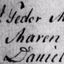 Fedor M
Maren
Daniel